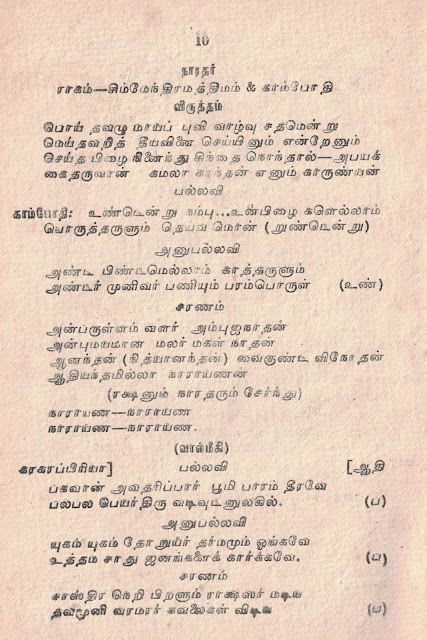 10
நாரதர்
ராகம்—சிம்மேந்திரமத்திமம் & காம்போதி
விருத்தம்
பொய் தவழு மாயப் புவி வாழ்வு சதமென்று
மெய்தவறித் தீயவினை செய்யினும் என்றேனும்
செய்த பிழை நினைந்து சிந்தை நொந்தால்—அபயக்
கைதருவான் கமலா காந்தன் எனும் காருண்யன்
பல்லவி
காம்போதி: உண்டென்று நம்பு...உன்பிழை களெல்லாம்
பொருத்தருளும் தெய்வ மொன் (றுண்டென்று)
அனுபல்லவி
அண்ட பிண்டமெல்லாம் காத்தருளும்
அண்டர் முனிவர் பணியும் பரம்பொருள் (உண்)
சரணம்
அன்பருள்ளம் வளர் அம்புஜநாதன்
அன்புமயமான மலர் மகள் நாதன்
ஆனந்தன் (நித்யானந்தன்) வைகுண்ட விநோதன்
ஆதியந்தமில்லா நாராயணன்
(ரக்ஷனும் நாரதரும் சேர்ந்து)
நாராயண—நாராயண
நாராயண—நாராயண.
(வால்மீகி)
கரகரப்பிரியா] பல்லவி [ஆதி
பகவான் அவதரிப்பார் பூமி பாரம் தீரவே
பலபல பெயர்திரு வடிவுடனுலகில். (ப)
அனுபல்லவி
யுகம் யுகம் தோறுயீர் தர்மமும் ஓங்கவே
உத்தம சாது ஜனங்களைக் கார்க்கவே. (ப)
சரணம்
சாஸ்திர நெறி பிறளும் ராக்ஷஸர் மடிய
தவமுனி வரமரர் கவலைகள் விடிய (ப)